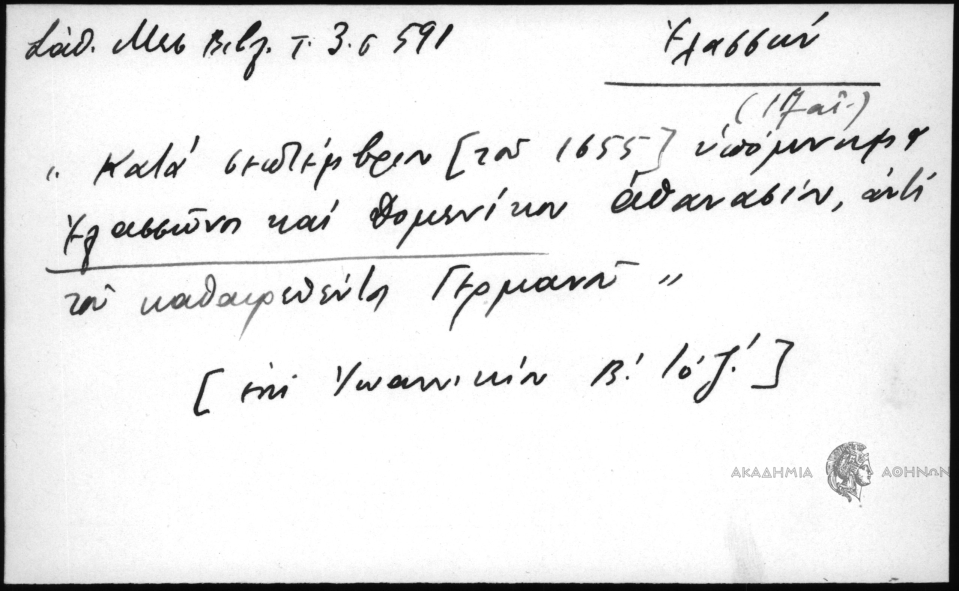 Σάθ. Μεσ. Βιβλ. τ. 3. σ 591
Ἐλασσών
(17 αἰ.)
„ Κατά σεπτέμβριον [τοῦ 1655] ὑπόμνημα
Ἐλασσῶνος καί Δομενίκου Ἀθανασίου, ἀντί
τοῦ καθαιρεθέντος Γερμανοῦ „
[ ἐπί Ἰωαννικίου Β΄. ]
ΑΚΑΔΗΜΙΑ ΑΘΗΝΩΝ